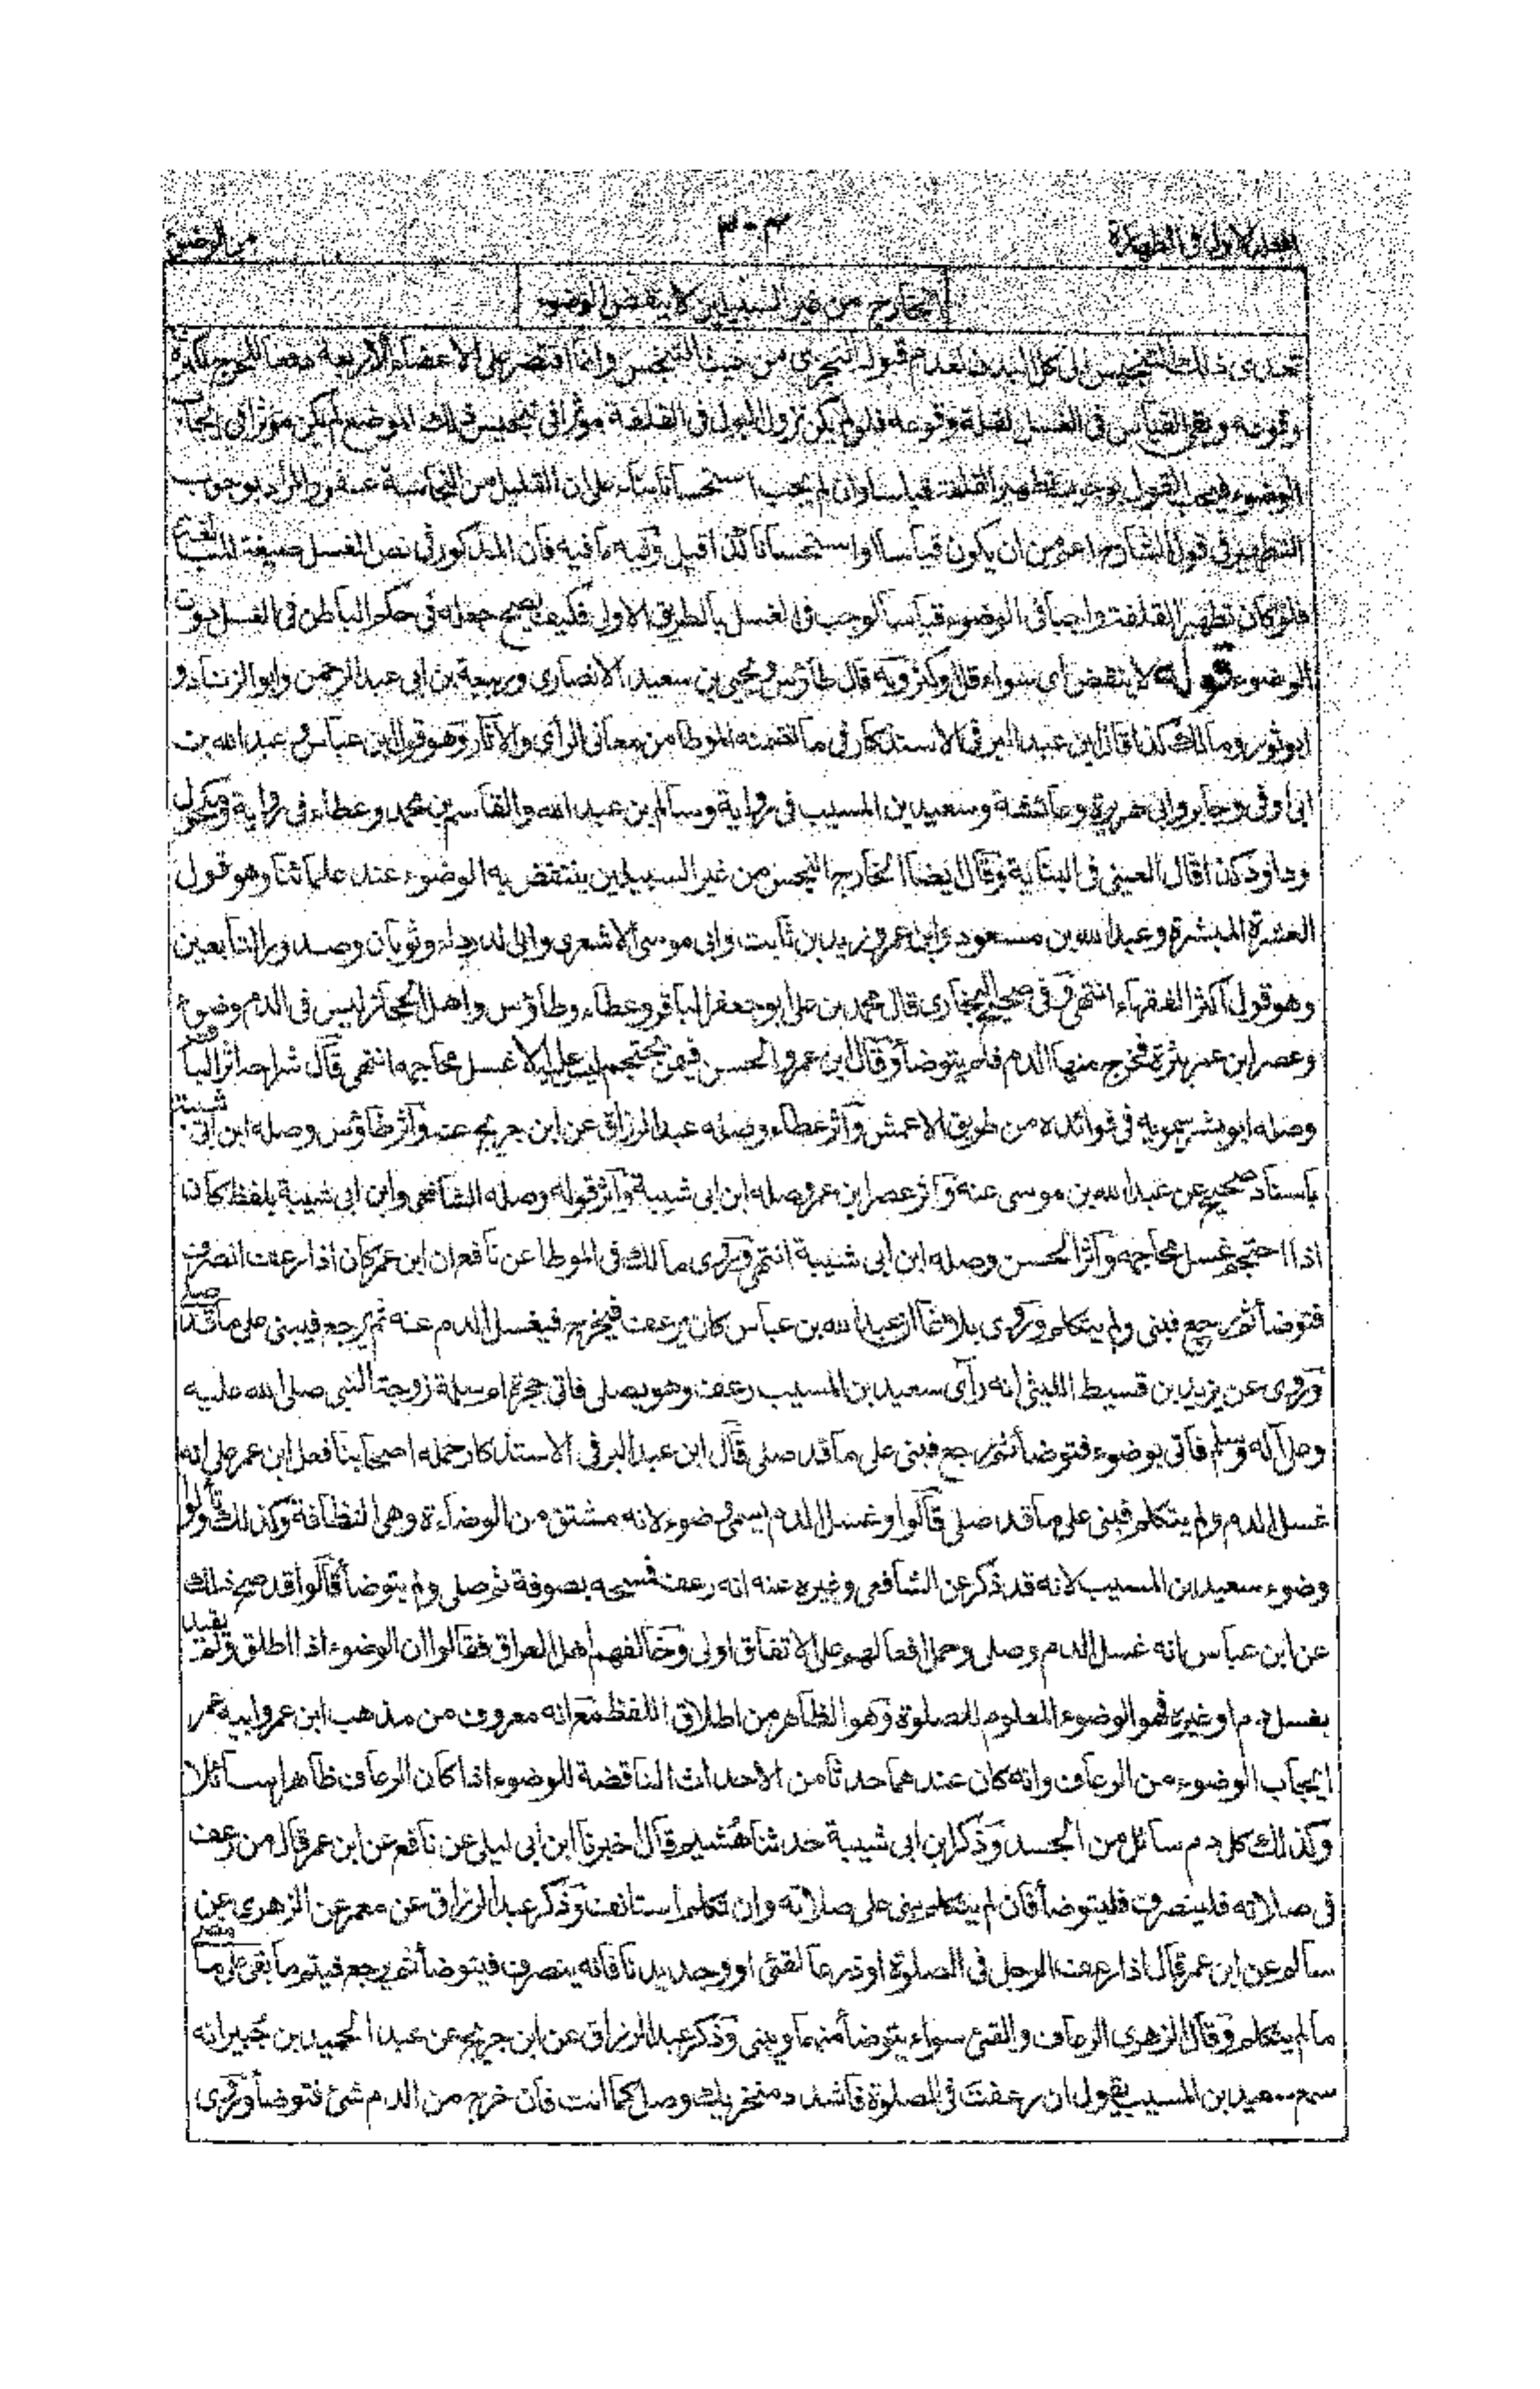 المجلد الاول فى الطهارة ٣٠٣ من الوضوء
الخارج من غير السبيلين لا ينقض الوضوء
تعدى ذلك التنجيس الى كل البدن لعدم قبول التجزى من حيث التنجس وانما اقتصر على الاعضاء الاربعة دفعا للحرج
وقوعه وبقى القياس فى الغسل لقلة وقوعه فلو لم يكن نزول البول فى القلفة مؤثرا فى تنجيس ذلك الموضع لم يكن مؤثرا فى ايجاب
الوضوء فيجب القول بوجوب تطهير القلفة قياسا وان لم يجب استحسانا بناء على ان القليل من النجاسة عفو والمراد بوجوب
التطهير فى قول الشارح اعم من ان يكون قياسا او استحسانا كذا قيل وفيه ما فيه فان المذكور فى نص الغسل صيغة المبالغة
فلو كان تطهير القلفة واجبا فى الوضوء قياسا لوجب فى الغسل بالطريق الاولى فكيف يصح جعله فى حكم الباطن فى الغسل دون
الوضوء قوله لا ينقض اى سواء قل وكثر وبه قال طاؤس ويحيى بن سعيد الانصارى وربيعة بن ابى عبد الرحمن وابو الزناد و
ابو ثور ومالك كذا قال ابن عبد البر فى الاستذكار فى ما تضمنه الموطا من معانى الرأى والآثار وهو قول ابن عباس وعبد الله بن
ابى اوفى وجابر وابى هريرة وعائشة وسعيد بن المسيب فى رواية وسالم بن عبد الله والقاسم بن محمد وعطاء فى رواية ومكحول
وداؤد كذا قال العينى فى البناية وقال ايضا الخارج النجس من غير السبيلين ينتقض به الوضوء عند علمائنا وهو قول
العشرة المبشرة وعبد الله بن مسعود وابن عمر وزيد بن ثابت وابى موسى الاشعرى وابى الدرداء وثوبان وصدور التابعين
وهو قول اكثر الفقهاء انتهى وفى صحيح البخارى قال محمد بن على ابو جعفر الباقر وعطاء وطاؤس واهل الحجاز ليس فى الدم وضوء
وعصر ابن عمر بثرة فخرج منها الدم فلم يتوضأ وقال ابن عمر والحسن فيمن يحتجم ليس عليه الا غسل محاجمه انتهى قال شراحه اثر الباقر
وصله ابو بشر سمويه فى فوائده من طريق الاعمش واثر عطاء وصله عبد الرزاق عن ابن جريج عنه واثر طاؤس وصله ابن ابى شيبة
باسناد صحيح عن عبد الله بن موسى عنه واثر عصر ابن عمر وصله ابن ابى شيبة واثر قوله وصله الشافعى وابن ابى شيبة بلفظ كان
اذا احتجم غسل محاجمه واثر الحسن وصله ابن ابى شيبة انتهى وروى مالك فى الموطا عن نافع ان ابن عمر كان اذا رعف انصرف
فتوضأ ثم رجع فبنى ولم يتكلم وروى بلاغا ان عبد الله بن عباس كان يرعف فيخرج فيغسل الدم عنه ثم يرجع فيبنى على ما قد صلى
وروى عن يزيد بن قسيط الليثى انه رأى سعيد بن المسيب رعف وهو يصلى فاتى حجرة ام سلمة زوجة النبى صلى الله عليه
وعلى آله وسلم فاتى بوضوء فتوضأ ثم رجع فبنى على ما قد صلى قال ابن عبد البر فى الاستذكار حمله اصحابنا فعل ابن عمر على انه
غسل الدم ولم يتكلم فبنى على ما قد صلى قالوا وغسل الدم يسمى وضوء لانه مشتق من الوضاءة وهى النظافة وكذلك تأولوا
وضوء سعيد بن المسيب لانه قد ذكر عن الشافعى وغيره عنه انه رعف فمسحه بصوفة ثم صلى ولم يتوضأ قالوا قد صح ذلك
عن ابن عباس بانه غسل الدم وصلى وحمل افعالهم على الاتفاق اولى وخالفهم اهل العراق فقالوا ان الوضوء اذا اطلق ولم يقيد
بغسل دم او غيره فهو الوضوء المعلوم للصلوة وهو الظاهر من اطلاق اللفظ مع انه معروف من مذهب ابن عمر وابيه عمر
ايجاب الوضوء من الرعاف وانه كان عندهما حدثا من الاحداث الناقضة للوضوء اذا كان الرعاف ظاهرا سائلا
وكذلك كل دم سائل من الجسد وذكر ابن ابى شيبة حدثنا هُشيم قال اخبرنا ابن ابى ليلى عن نافع عن ابن عمر قال من رعف
فى صلاته فلينصرف فليتوضأ فان لم يتكلم بنى على صلاته وان تكلم استانف وذكر عبد الرزاق عن معمر عن الزهرى عن
سالم عن ابن عمر قال اذا رعف الرجل فى الصلوة او ذرعه القئ او وجد مذيا فانه ينصرف فيتوضأ ثم يرجع فيتم ما بقى على ما مضى
ما لم يتكلم وقال الزهرى الرعاف والقئ سواء يتوضأ منهما ويبنى وذكر عبد الرزاق عن ابن جريج عن عبد الحميد بن جُبير انه
سمع سعيد بن المسيب يقول ان رعفت فى الصلوة فاشدد منخريك وصل كما انت فان خرج من الدم شئ فتوضأ وروى